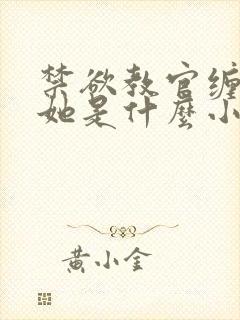 禁欲教官缠
她是什麼小
黄小金